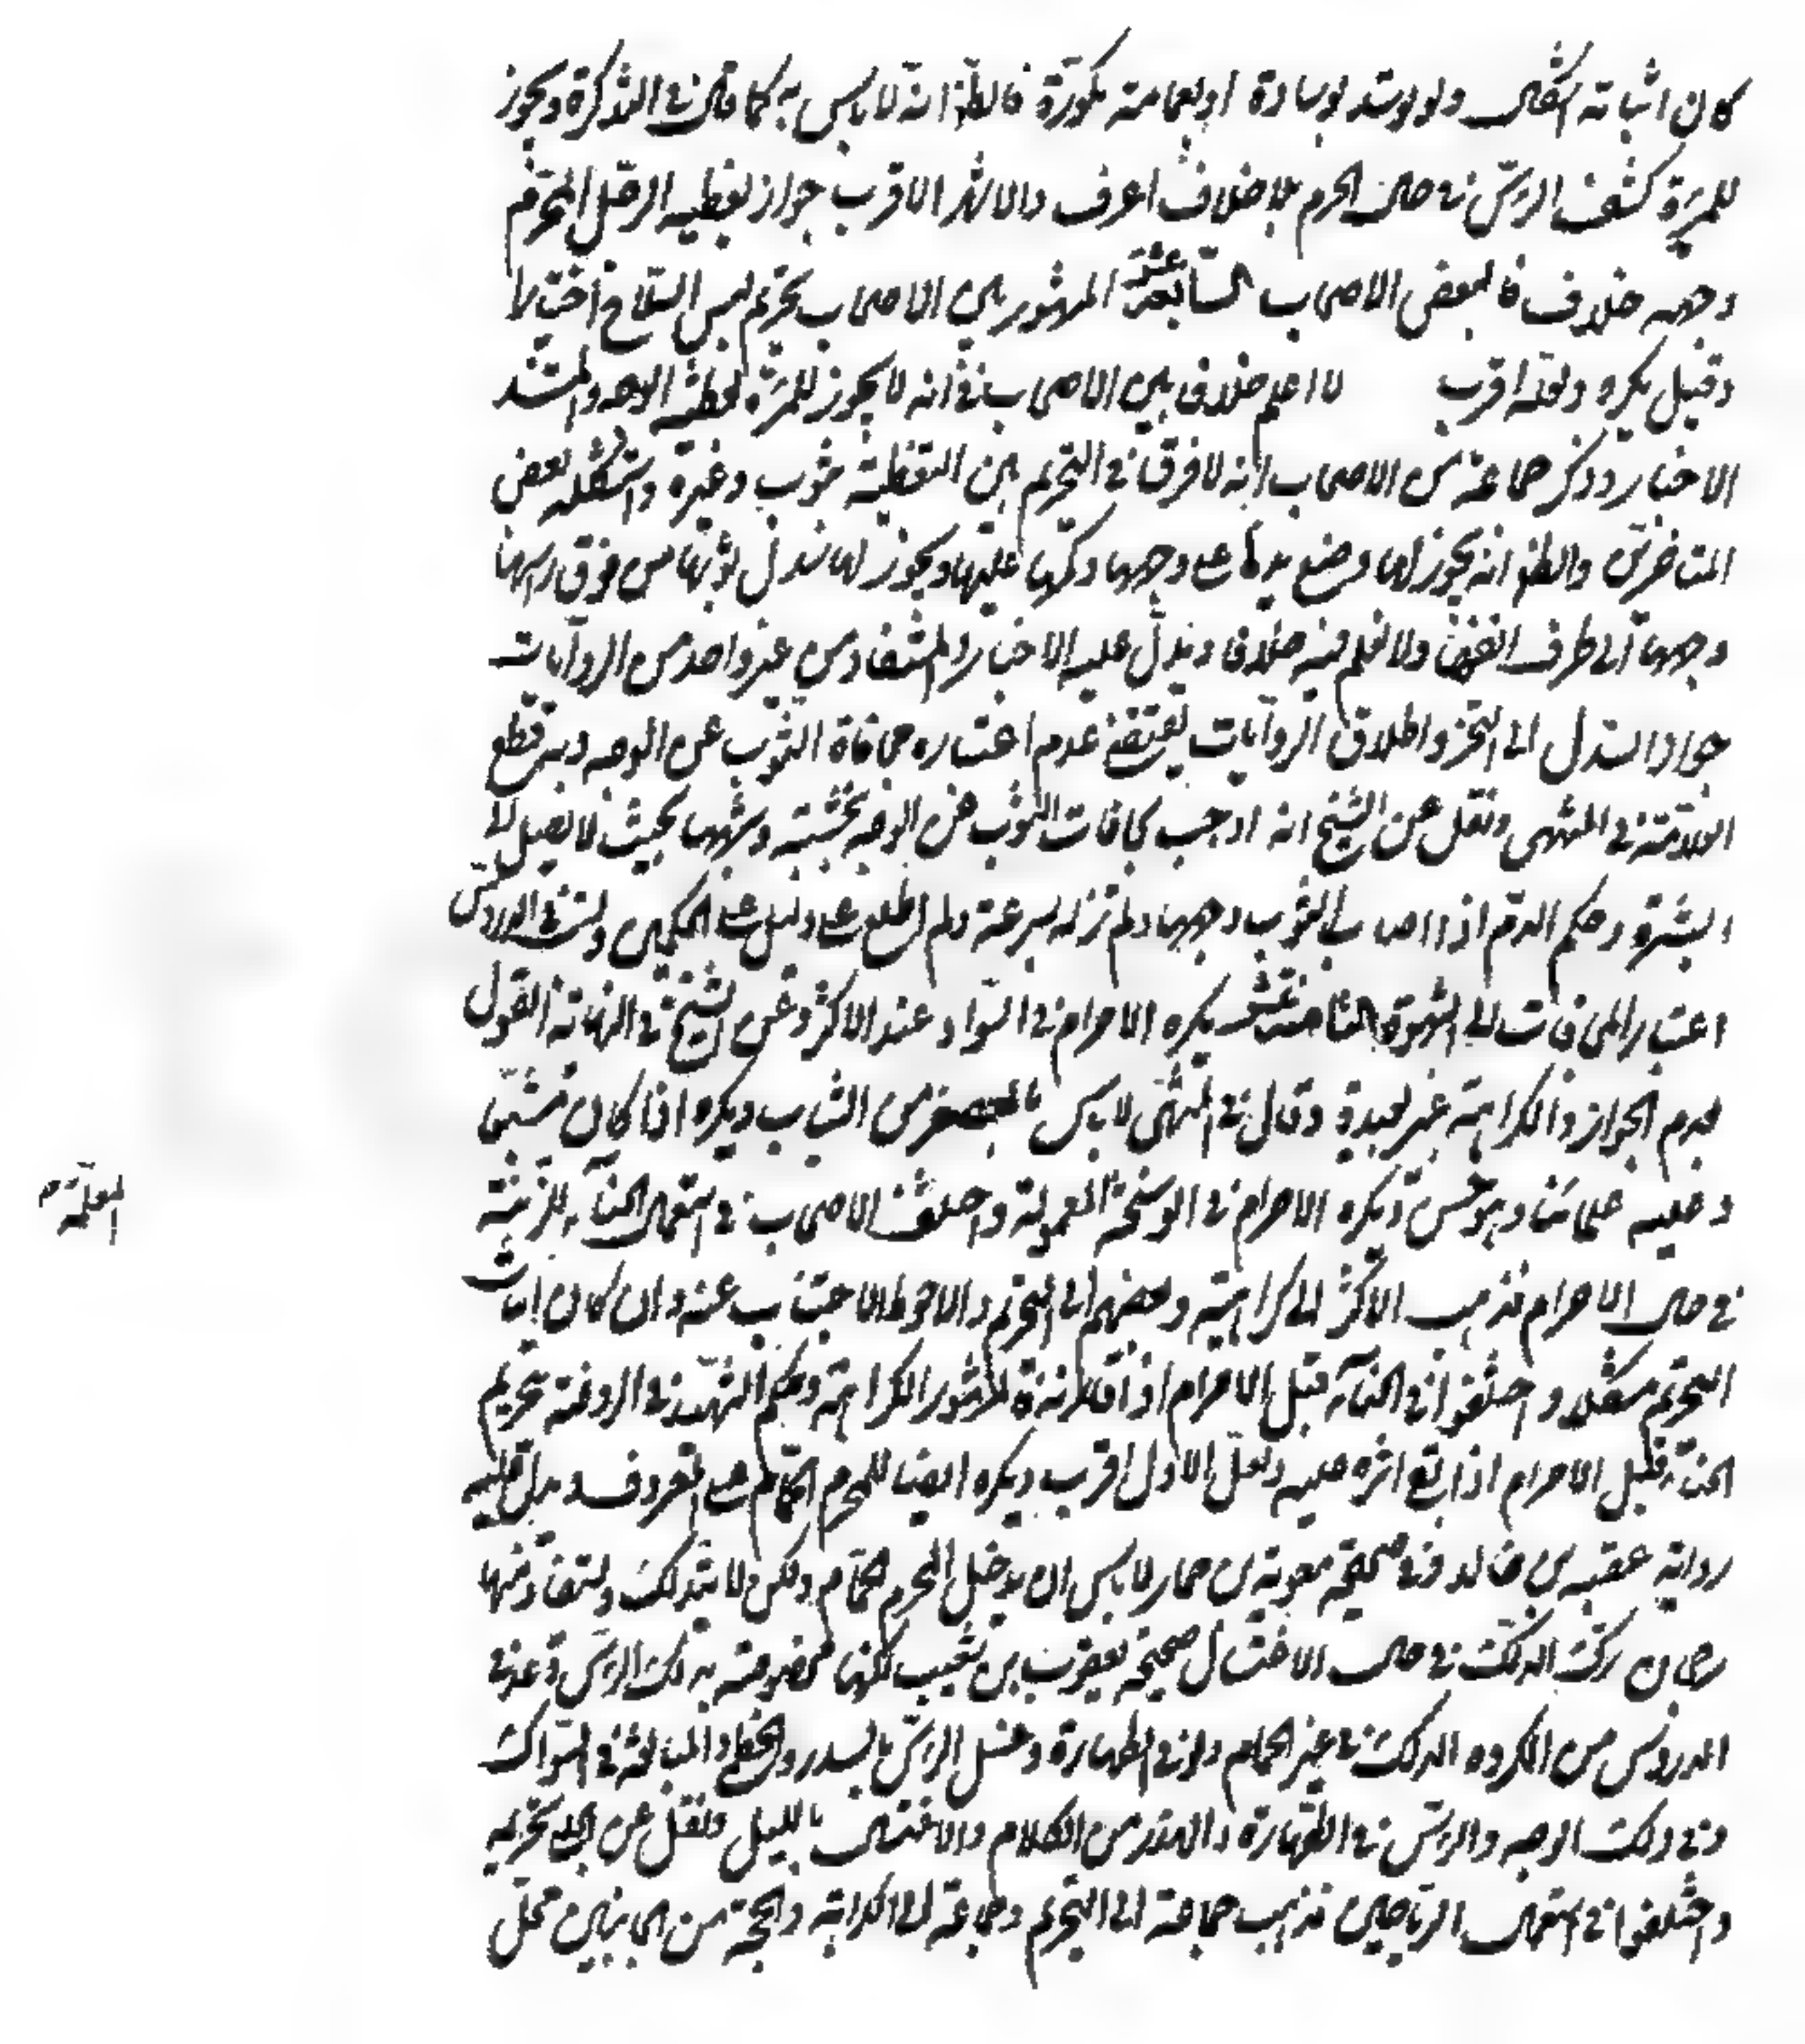 كان اثباته اشكال ولو وسد بوسادة او بعمامة مكورة فالظ انه لا باس به كما قال في التذكرة ويجوز
للمرءة كشف الرأس في حال الحرم بلا خلاف اعرف والاشهر الاقرب جواز تغطيه الرجل المحرم
وجهه خلافا لبعض الاصحاب السابعة عشر المشهور بين الاصحاب تحريم لبس السلاح اختيارا
وقيل يكره ولعله اقرب لا اعلم خلافا بين الاصحاب في انه لا يجوز للمرءة تغطية الوجه والمستند
الاخبار وذكر جماعة من الاصحاب انه لا فرق في التحريم بين التغطية بثوب وغيره واستشكله بعض
المتاخرين والظ انه يجوز لها وضع يديها على وجهها وكمها عليها ويجوز لها سدل ثوبها من فوق راسها
وجهها الى طرف انفها ولا اعلم فيه خلافا ويدل عليه الاخبار والمستفاد من غير واحد من الروايات
جواز السدل الى النحر واطلاق الروايات يقتضي عدم اعتباره مجافاة الثوب عن الوجه وبه قطع
العلامة في المنتهى ونقل عن الشيخ انه اوجب مجافات الثوب عن الوجه بخشبة وشبهها بحيث لا يصل الى
البشرة وحكم الدم اذا اصاب الثوب وجهها ولم تزله بسرعة ولم اطلع على دليل على الحكمين وليس في الدروس
اعتبار المجافات الى الشهوة الثامنة عشر يكره الاحرام في السواد عند الاكثر وعن الشيخ في النهاية القول
بعدم الجواز والكراهة غير بعيدة وقال في المنتهى لا باس بالمعصفر من الثياب ويكره اذا كان مشبعا
وعليه علمائنا وهو حسن ويكره الاحرام في الوسخة المعمولة واختلف الاصحاب في استعمال الحناء للزينة
في حال الاحرام فذهب الاكثر الى الكراهية وبعضهم الى التحريم والاحوط الاجتناب عنه وان كان اثبات
التحريم مشكلا واختلفوا في الحناء قبل الاحرام اذا قارنه فالمشهور الكراهة وحكم الشهيد في الروضة بتحريم
الحناء قبل الاحرام اذا بقي اثره عليه ولعل الاول اقرب ويكره ايضا للمحرم الحمام على المعروف ويدل عليه
رواية عقبه بن خالد وفي صحيحة معوية بن عمار لا باس ان يدخل المحرم الحمام ولكن لا يتدلك ويستفاد منها
رجحان ترك الدلك في حال الاغتسال صحيحة يعقوب بن شعيب لكنها مخصوصة بدلك الراس وعد في
الدروس من المكروه الدلك في غير الحمام ولو في الطهارة وغسل الراس بالسدر والخطمي والمبالغة في السواك
وفي دلك الوجه والراس في الطهارة والهذر من الكلام والاغتسال بالليل ونقل عن الحلبي تحريمه
واختلفوا في استعمال الرياحين فذهب جماعة الى التحريم وجماعة الى الكراهة والحجة من الجانبين محل